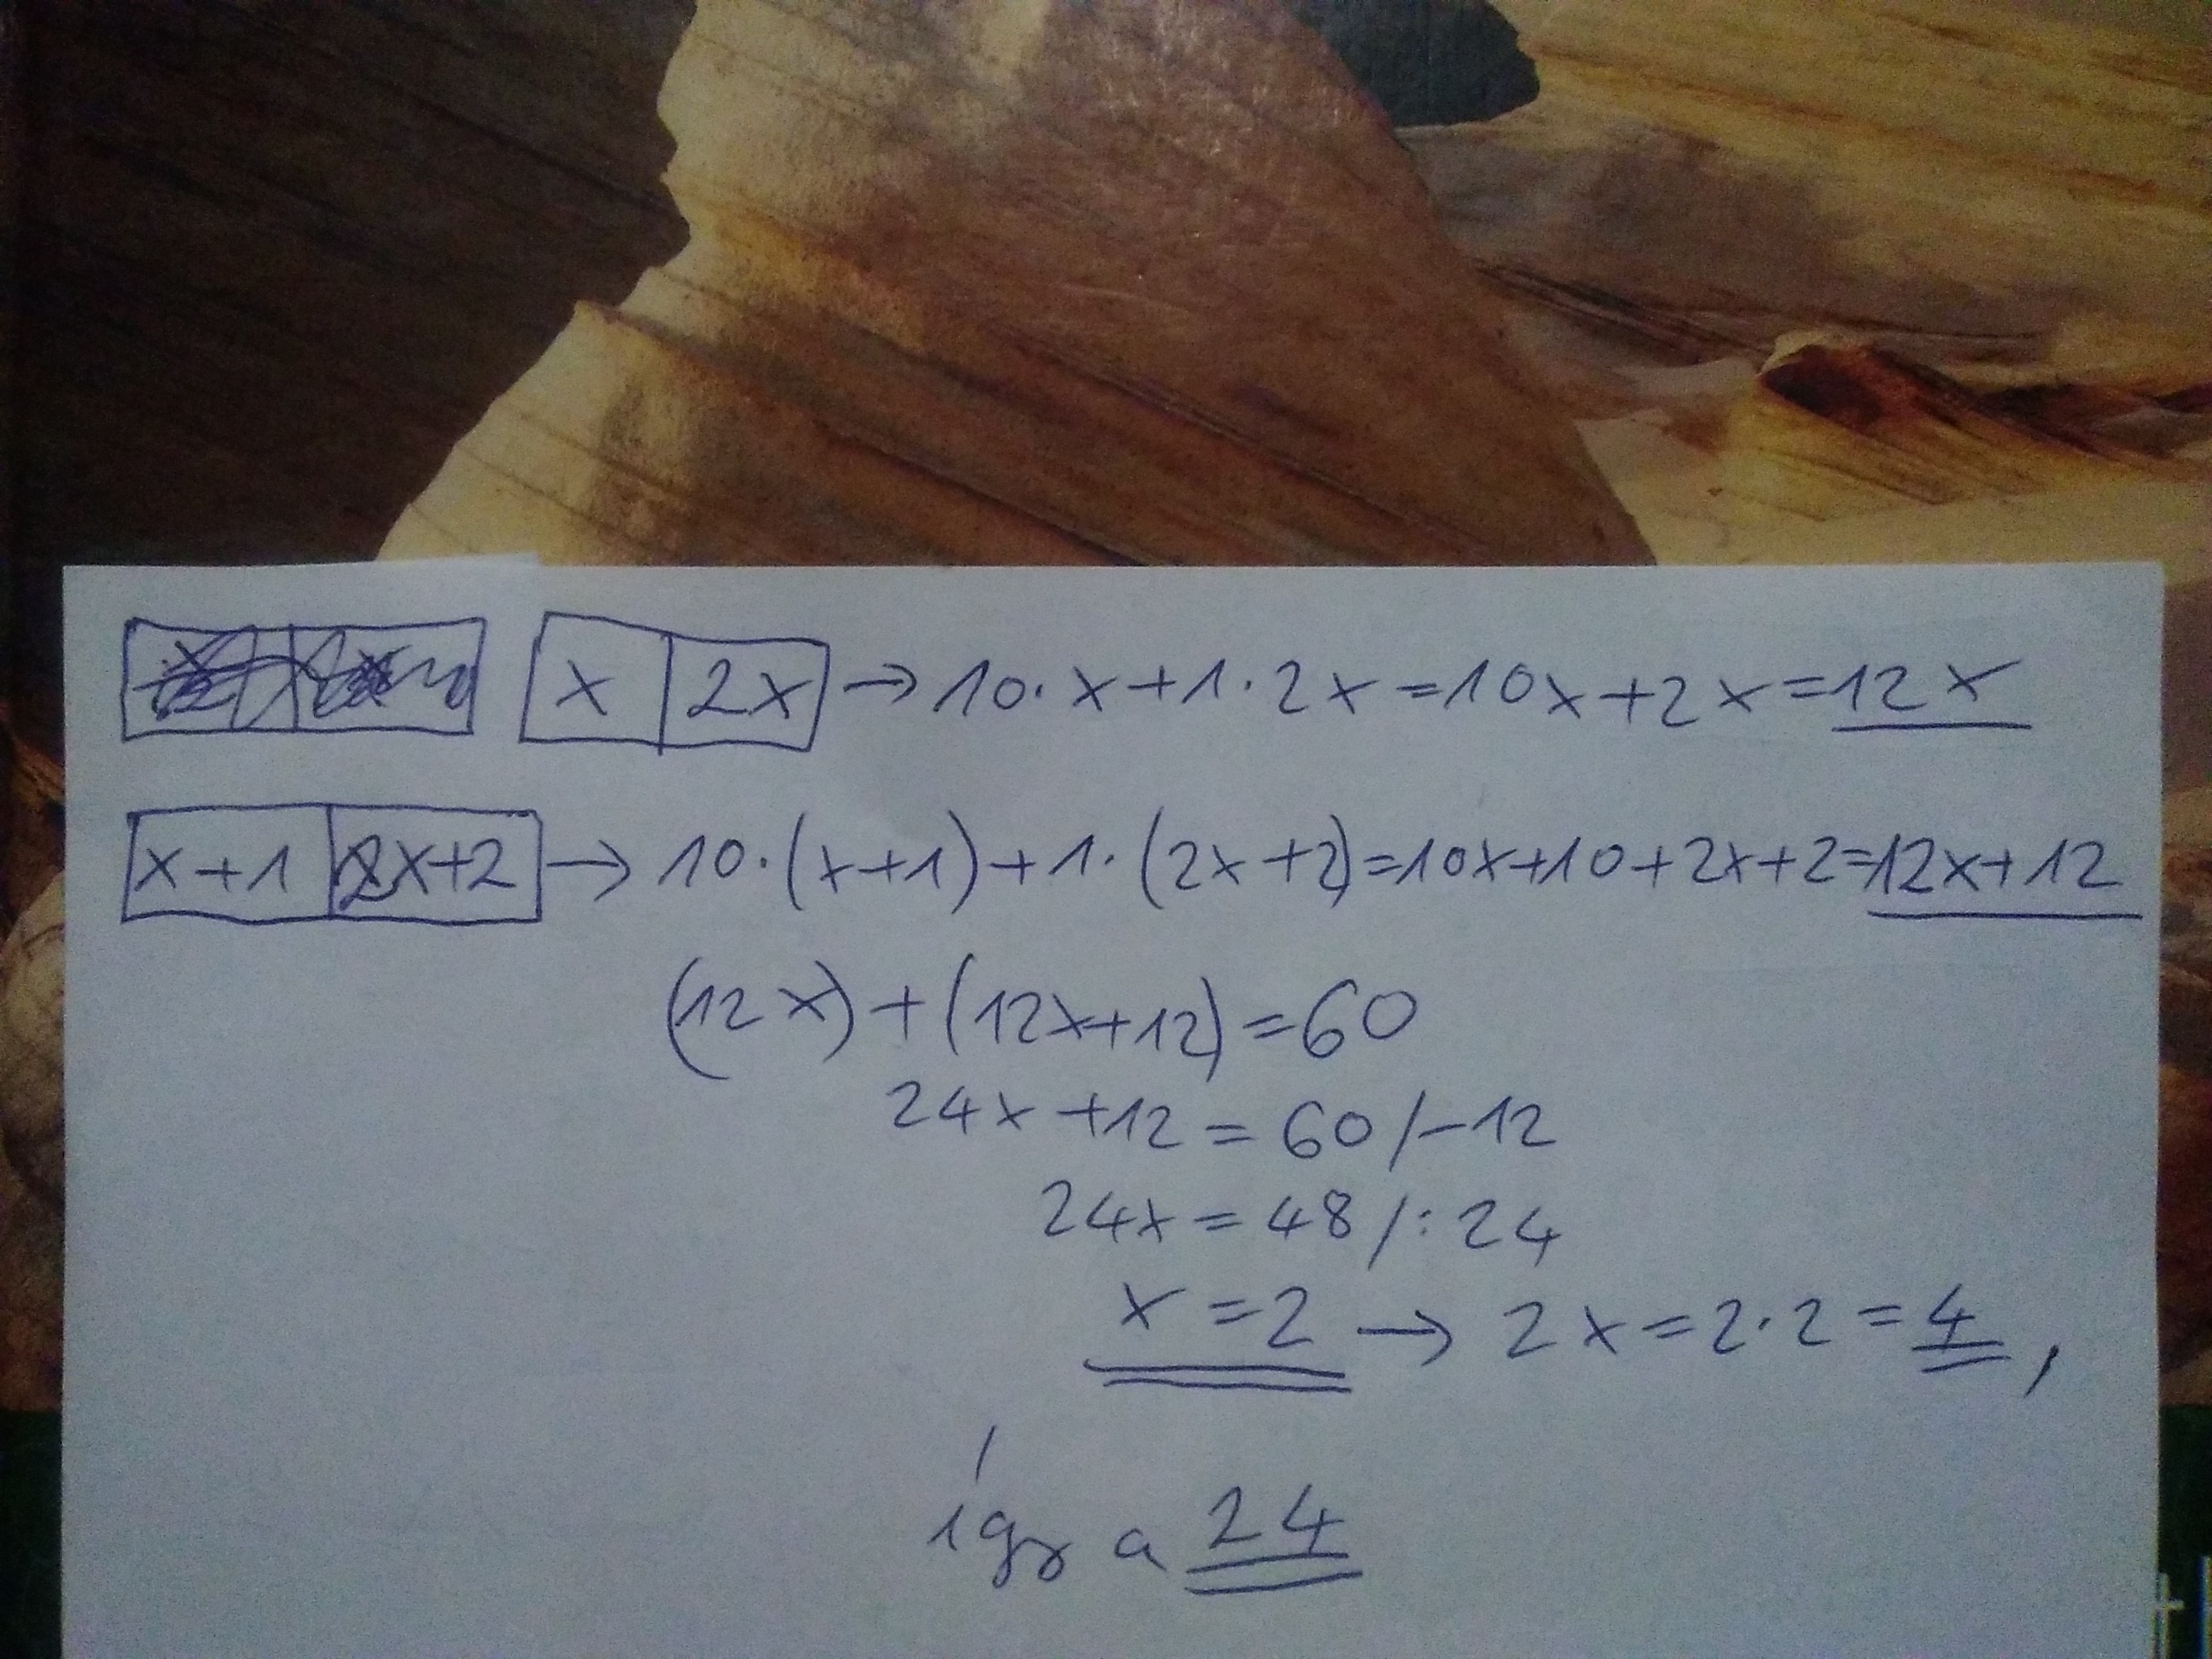 x 2x → 10·x+1·2x=10x+2x=12x
x+1 2x+2 → 10·(x+1)+1·(2x+2)=10x+10+2x+2=12x+12
(12x)+(12x+12)=60
24x+12=60/-12
24x=48/:24
x=2 → 2x=2·2=4,
így a 24